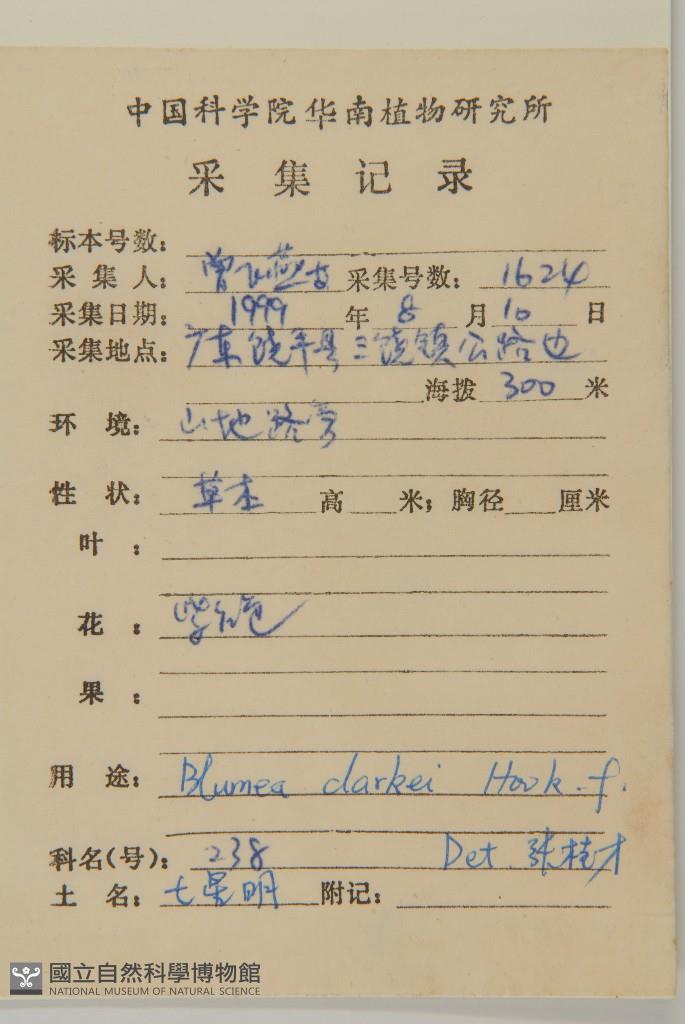 中国科学院华南植物研究所
采集记录
标本号数：
采集人：曾飞燕 采集号数：1624
采集日期：1999年8月10日
采集地点：广东饶平县三饶镇公路边
海拨300米
环境：山地路旁
性状：草本 高 米；胸径 厘米
叶：
花：紫红色
果：
用途：Blumea clarkei Hook.f.
科名(号)：238 Det. 张桂才
土名：七星明 附记：
國立自然科學博物館
NATIONAL MUSEUM OF NATURAL SCIENCE